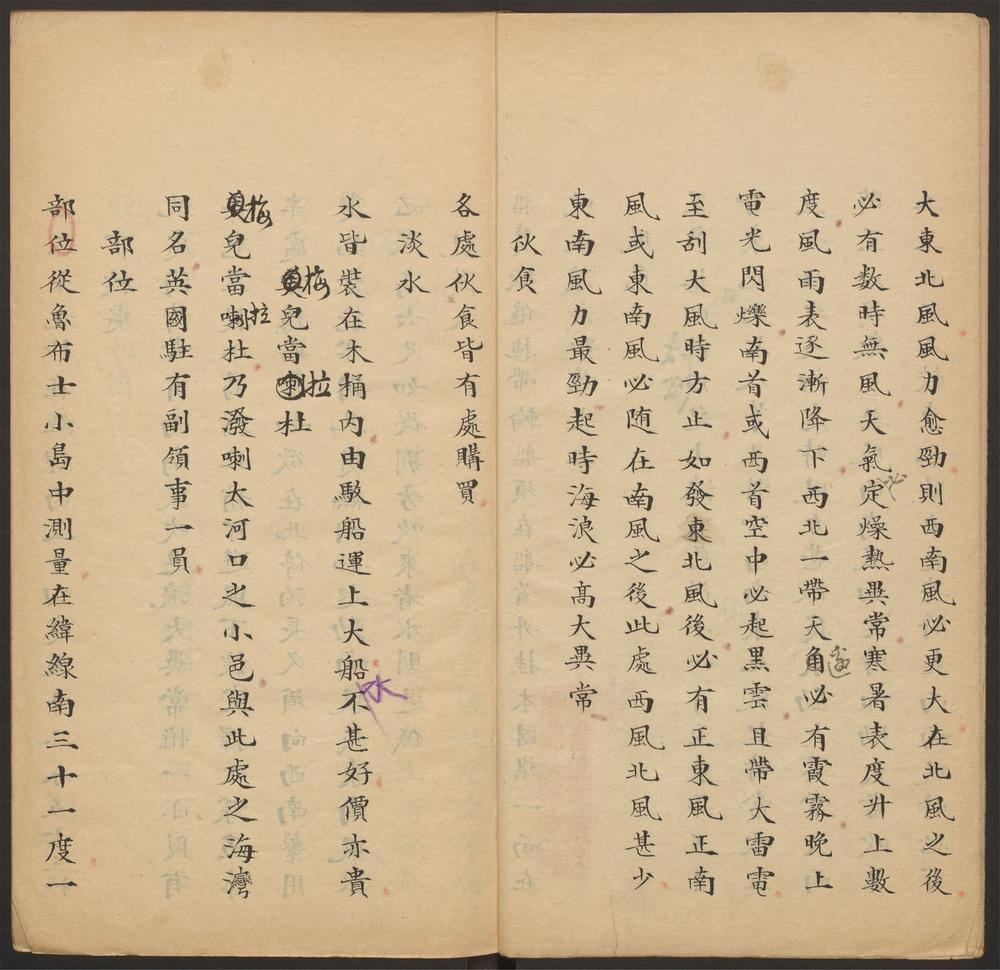 大東北風風力愈勁則西南風必更大在北風之後
必有數時無風天氣定必燥熱異常寒暑表度升上數
度風雨表逐漸降下西北一帶天角邊必有霞霧晚上
電光閃爍南首或西首空中必起黑雲且帶大雷電
至刮大風時方止如發東北風後必有正東風正南
風或東南風必隨在南風之後此處西風北風甚少
東南風力最勁起時海浪必高大異常
伙食
各處伙食皆有處購買
淡水
水皆裝在木桶內由駁船運上大船水不甚好價亦貴
梅兒當拉杜
梅兒當拉杜乃潑喇大河口之小邑與此處之海灣
同名英國駐有副領事一員
部位
部位從魯布士小島中測量在緯線南三十一度一